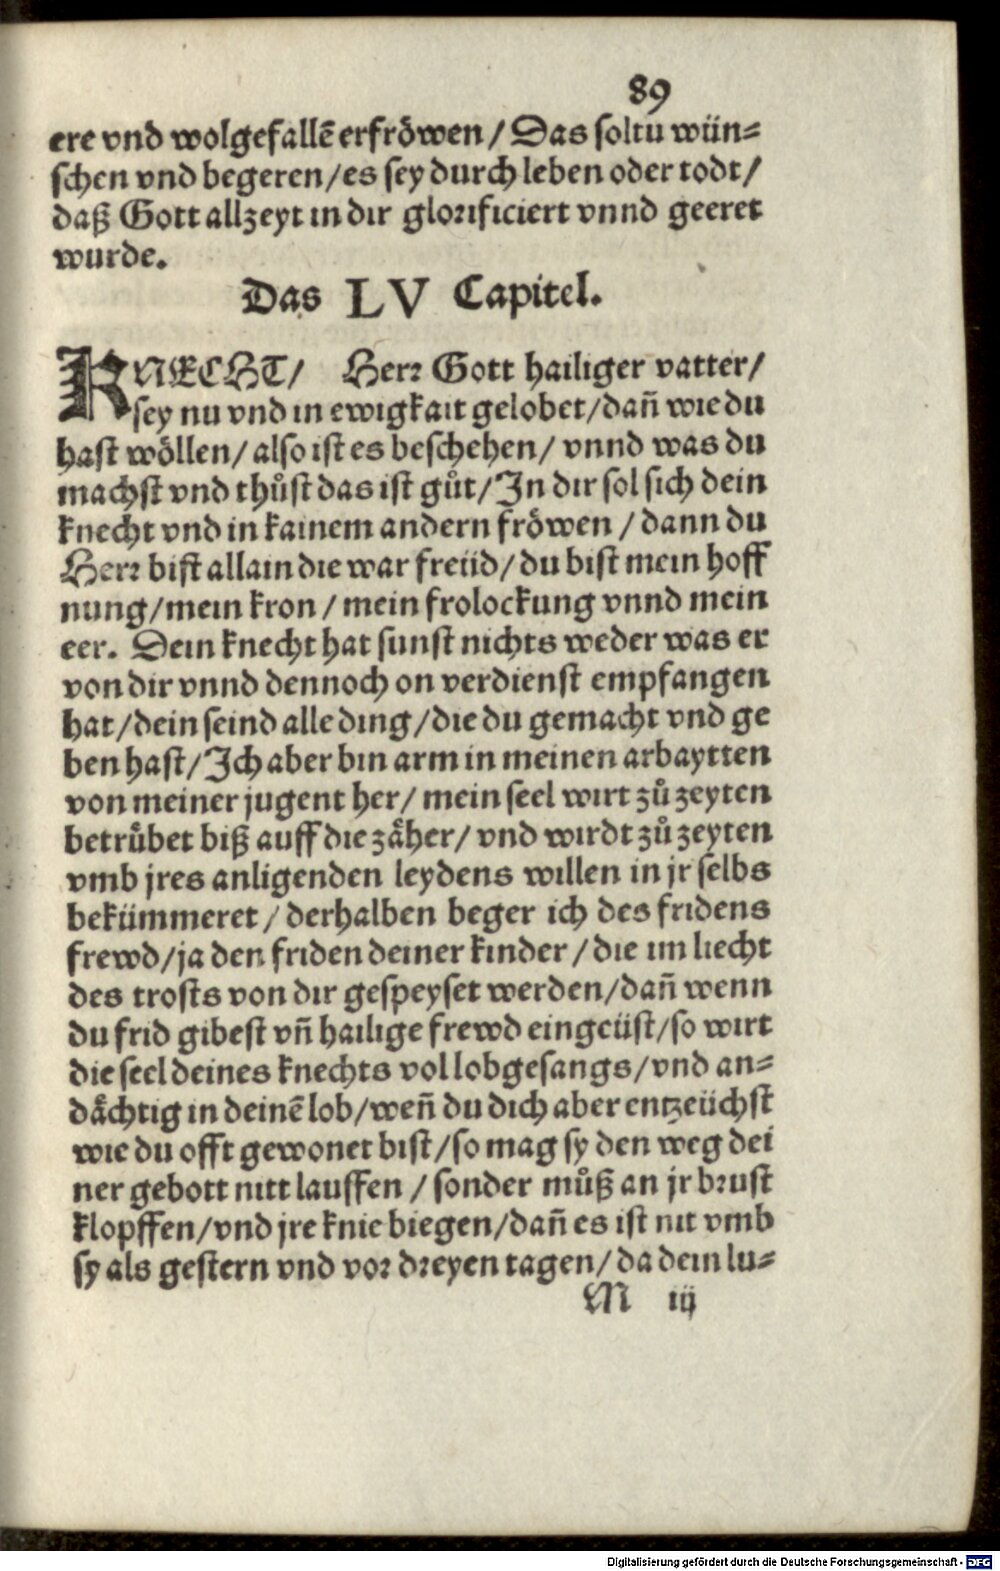 89
ere vnd wolgefallē erfröwen / Das soltu wün⸗
schen vnd begeren / es sey durch leben oder todt /
daß Gott allzeyt in dir glorificiert vnnd geeret
wurde.
Das LV Capitel.
KNECHT / Herr Gott hailiger vatter /
sey nu vnd in ewigkait gelobet / dañ wie du
hast wöllen / also ist es beschehen / vnnd was du
machst vnd thůst das ist gůt / In dir sol sich dein
knecht vnd in kainem andern fröwen / dann du
Herr bist allain die war freüd / du bist mein hoff
nung / mein kron / mein frolockung vnnd mein
eer. Dein knecht hat sunst nichts weder was er
von dir vnnd dennoch on verdienst empfangen
hat / dein seind alle ding / die du gemacht vnd ge
ben hast / Ich aber bin arm in meinen arbaytten
von meiner jugent her / mein seel wirt zů zeyten
betrübet biß auff die zäher / vnd wirdt zů zeyten
vmb jres anligenden leydens willen in jr selbs
bekümmeret / derhalben beger ich des fridens
frewd / ja den friden deiner kinder / die im liecht
des trosts von dir gespeyset werden / dañ wenn
du frid gibest vñ hailige frewd eingeüst / so wirt
die seel deines knechts vol lobgesangs / vnd an⸗
dächtig in deinē lob / weñ du dich aber entzeüchst
wie du offt gewonet bist / so mag sy den weg dei
ner gebott nitt lauffen / sonder můß an jr brust
klopffen / vnd jre knie biegen / dañ es ist nit vmb
sy als gestern vnd vor dreyen tagen / da dein lu⸗
M iij
Digitalisierung gefördert durch die Deutsche Forschungsgemeinschaft - DFG